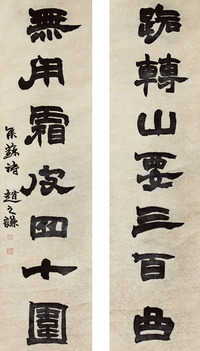 路轉山要三百曲
無用霜皮四十圍
集蘇詩 趙之謙